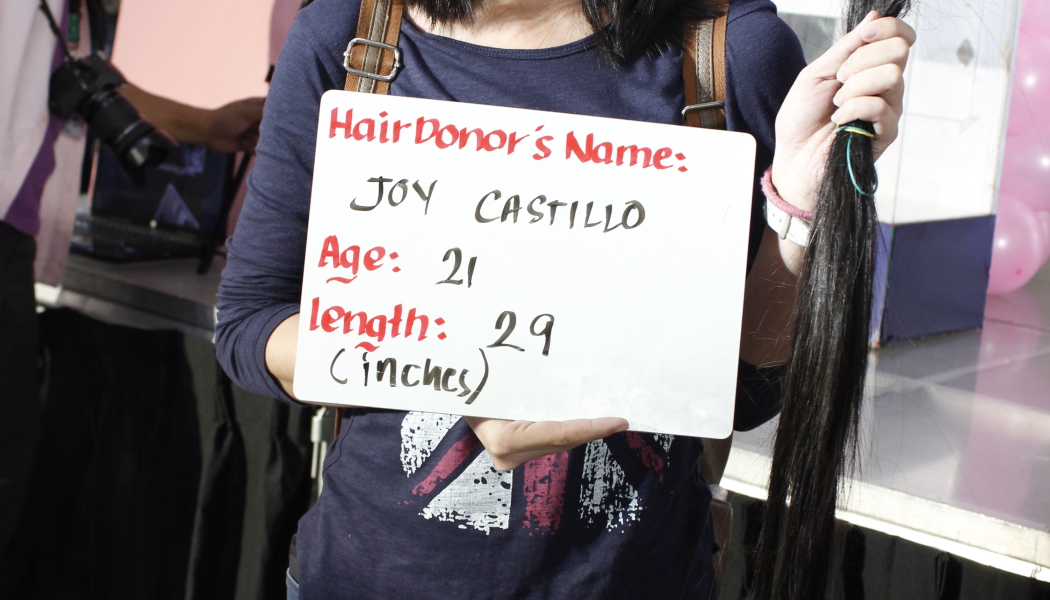 Hair Donor's Name:
JOY CASTILLO
Age: 21
length: 29
(inches)